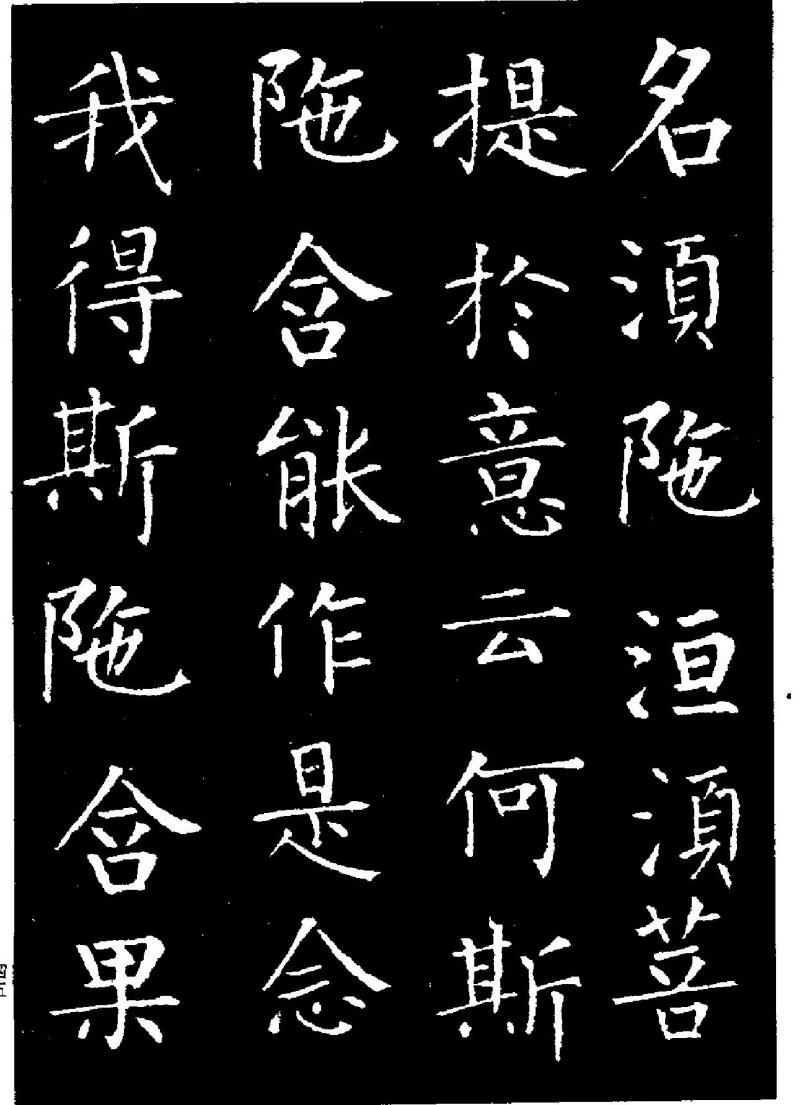 名湏陁洹湏菩
提扵意云何斯
陁含能作是念
我得斯陁含果